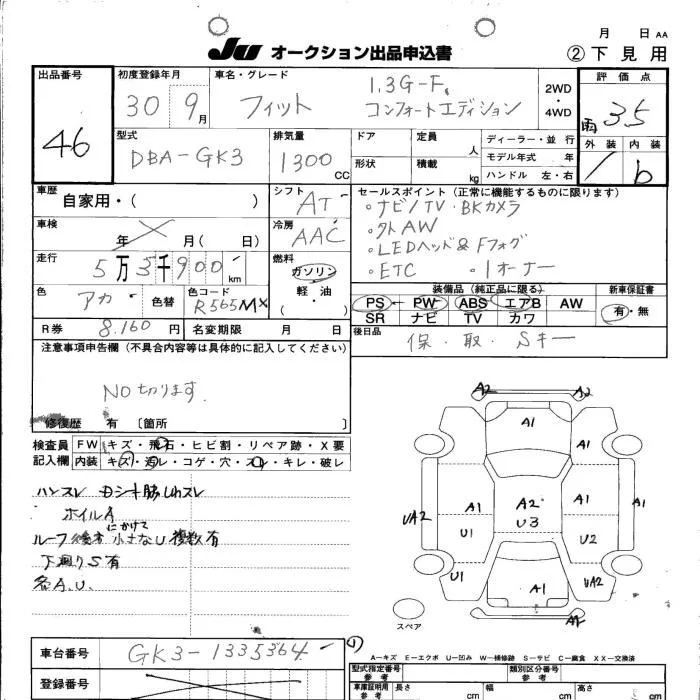 月 日 AA
JU オークション出品申込書 ②下見用
出品番号 46
初度登録年月 30 9月
車名・グレード フィット 1.3G-F コンフォートエディション
2WD・4WD
評価点 3.5
外装 内装 b
型式 DBA-GK3
排気量 1300 CC
ドア 定員 人
形状 積載 kg
ディーラー・並行
モデル年式 年
ハンドル 左・右
車歴 自家用・( )
シフト AT
セールスポイント(正常に機能するものに限ります)
・ナビ/TV・BKカメラ
・外AW
・LEDヘッド&Fフォグ
・ETC ・1オーナー
車検 年 月( 日)
冷房 AAC
走行 5万3千900 km
燃料 ガソリン 軽・油 ( )
色 アカ 色替
色コード R565MX
装備品(純正品に限る) 新車保証書
PS PW ABS エアB AW 有・無
SR ナビ TV カワ
R券 8.160円 名変期限 月 日
後日品 保・取・Sキー
注意事項申告欄(不具合内容等は具体的に記入してください)
NO切ります
修復歴 有 〔箇所 〕
検査員記入欄
FW キズ・飛石・ヒビ割・リペア跡・X要
内装 キズ・汚レ・コゲ・穴・スレ・キレ・破レ
ハンスレ
ホイルA
ルーフ 後方にかけて小さなU複数有
下廻りS有
各A.U.
A2 A2
A1
A1 A2 A1 A1
UA2 U1 U3 U2
U1 A1 UA2
A2
スペア
A−キズ E−エクボ U−凹み W−補修跡 S−サビ C−腐食 XX−交換済
車台番号 GK3-1335364
登録番号
型式指定番号 参考 類別区分番号 参考
車庫証明用 参考 長さ cm 幅 cm 高さ cm